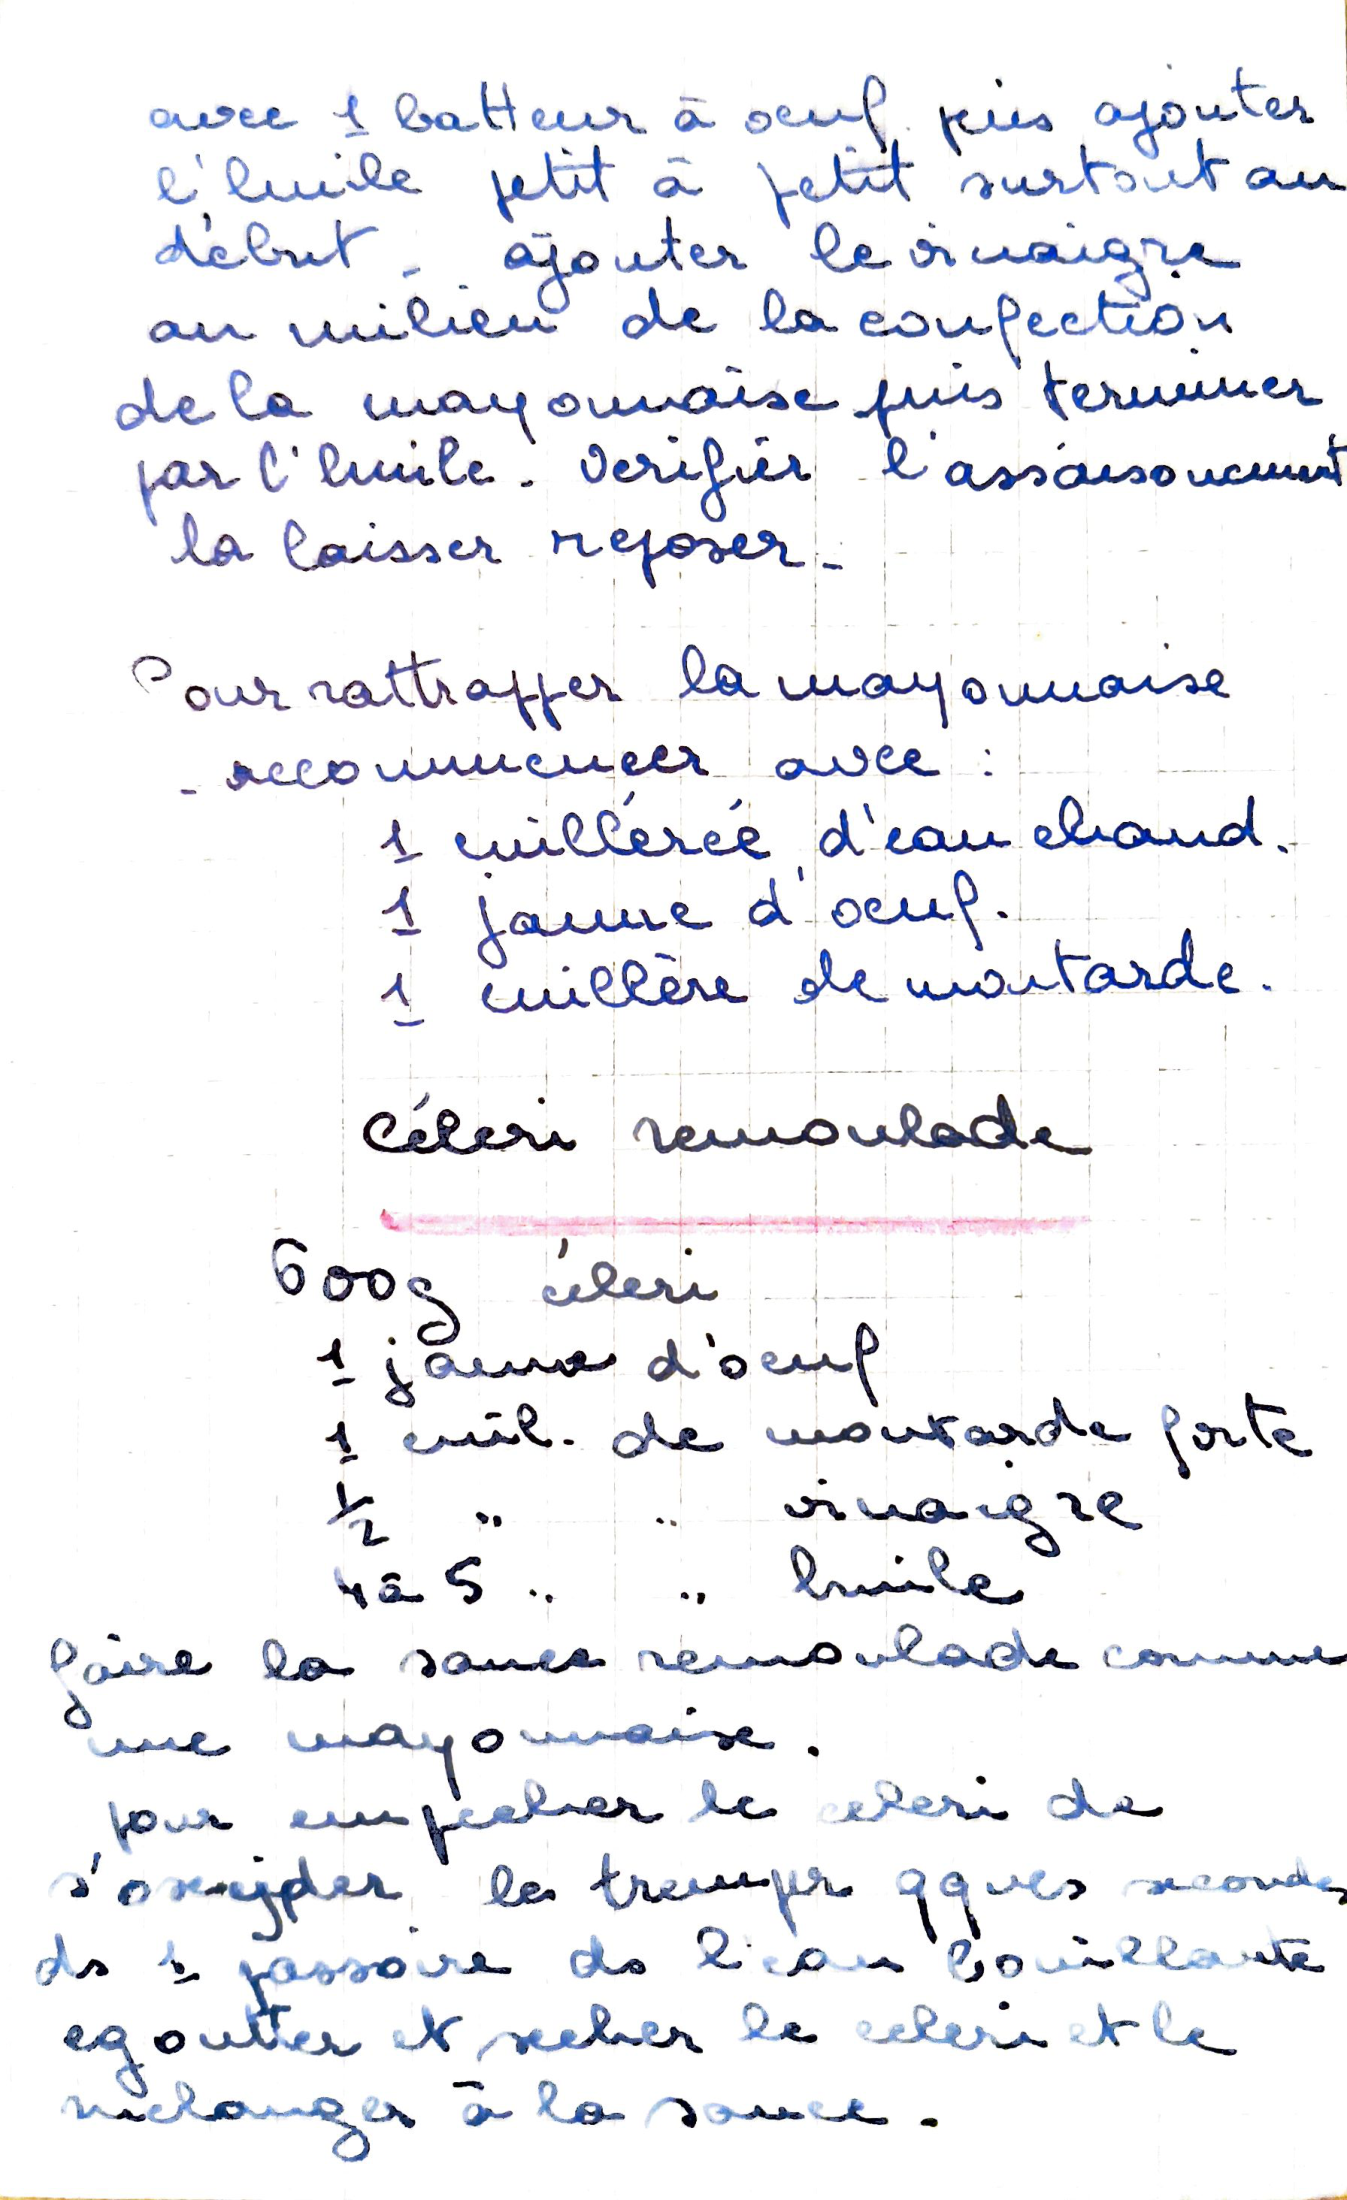 avec 1 batteur à oeuf puis ajouter
l'huile petit à petit surtout au
début - ajouter le vinaigre
au milieu de la confection
de la mayonnaise puis terminer
par l'huile. Verifier l'assaisonement
la laisser reposer -
Pour rattrapper la mayonnaise
- recommencer avec :
1 cuillérée d'eau chaud.
1 jaune d'oeuf.
1 cuillère de moutarde.
Céleri remoulade
600g céleri
1 jaune d'oeuf
1 cuil. de moutarde forte
1/2 " " vinaigre
4 à 5 " " huile
faire la sauce remoulade comme
une mayonnaise.
pour empecher le celeri de
s'oxyder le tremper qques secondes
ds 1 passoire ds l'eau bouillante
egoutter et secher le celeri et le
melanger à la sauce.